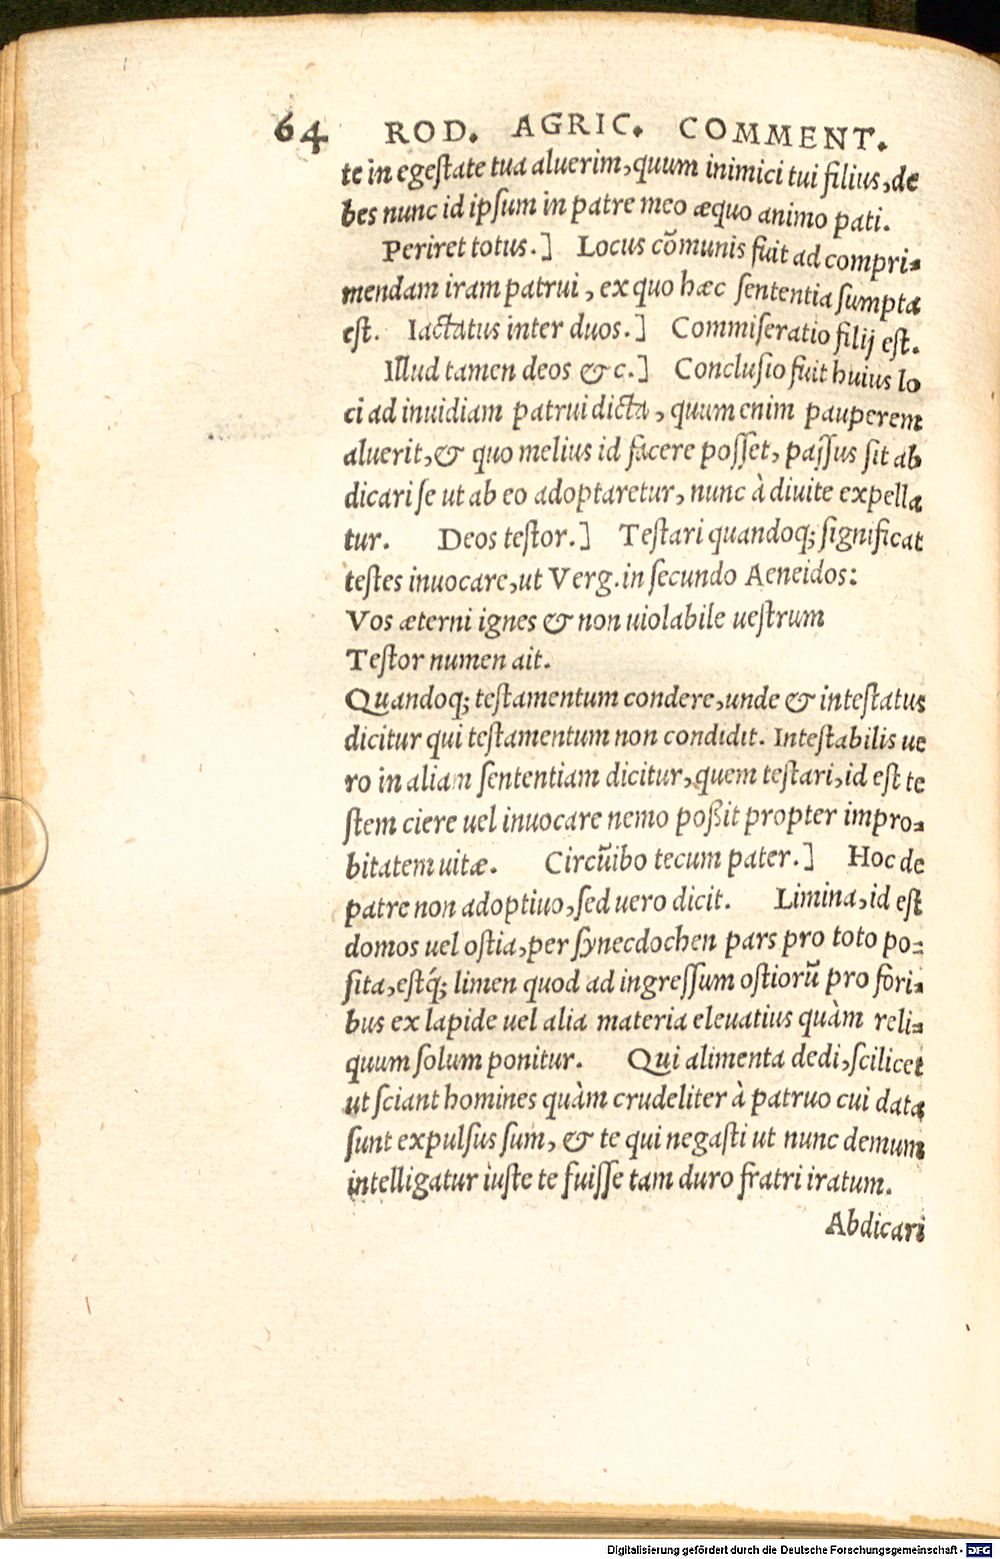 64 ROD. AGRIC. COMMENT.
te in egeſtate tua aluerim, quum inimici tui filius, de
bes nunc id ipſum in patre meo æquo animo pati.
Periret totus.] Locus cõmunis fuit ad compri-
mendam iram patrui, ex quo hæc ſententia ſumpta
eſt. Iactatus inter duos.] Commiſeratio filij eſt.
Illud tamen deos & c.] Concluſio fuit huius lo
ci ad inuidiam patrui dicta, quum enim pauperem
aluerit, & quo melius id facere poſſet, paſſus ſit ab
dicari ſe ut ab eo adoptaretur, nunc à diuite expella
tur. Deos teſtor.] Teſtari quandoq; ſignificat
teſtes inuocare, ut Verg. in ſecundo Aeneidos:
Vos æterni ignes & non uiolabile ueſtrum
Teſtor numen ait.
Quandoq; teſtamentum condere, unde & inteſtatus
dicitur qui teſtamentum non condidit. Inteſtabilis ue
ro in aliam ſententiam dicitur, quem teſtari, id eſt te
ſtem ciere uel inuocare nemo poßit propter impro-
bitatem uitæ. Circũibo tecum pater.] Hoc de
patre non adoptiuo, ſed uero dicit. Limina, id eſt
domos uel oſtia, per ſynecdochen pars pro toto po-
ſita, eſtq́; limen quod ad ingreſſum oſtiorũ pro fori-
bus ex lapide uel alia materia eleuatius quàm reli-
quum ſolum ponitur. Qui alimenta dedi, ſcilicet
ut ſciant homines quàm crudeliter à patruo cui data
ſunt expulſus ſum, & te qui negaſti ut nunc demum
intelligatur iuſte te fuiſſe tam duro fratri iratum.
Abdicari
Digitalisierung gefördert durch die Deutsche Forschungsgemeinschaft - DFG